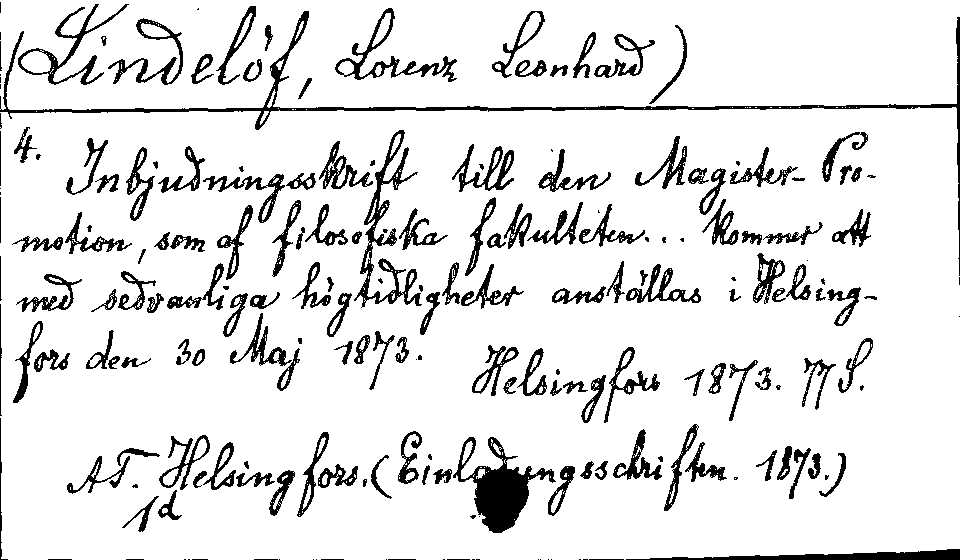 (Lindelöf, Lorenz Leonhard)
4.
Inbjudningsskrift till den Magister-Pro-
motion, som af filosofiska fakulteten... kommer att
med sedvanliga högtidligheter anställas i Helsing-
fors den 30 Maj 1873.
Helsingfors 1873. 77 S.
AT. Helsingfors. (Einladungsschriften. 1873.)
1d